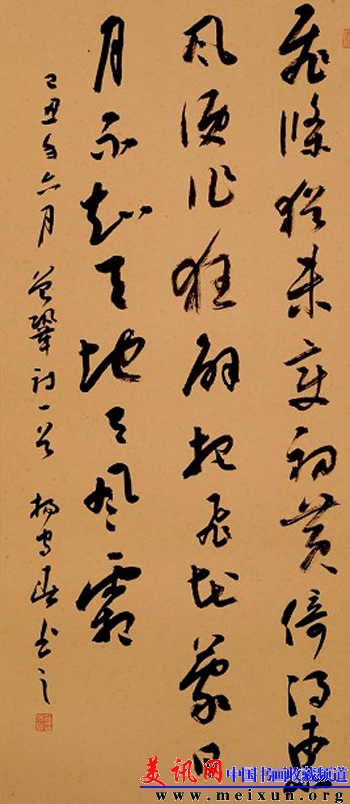 條猶未變初黄倚得東
風便作狂解把飛花蒙日
月不知天地風霜
己丑年六月 曾鞏詩一首 書之
美讯网 中国书画收藏频道
www.meixun.org